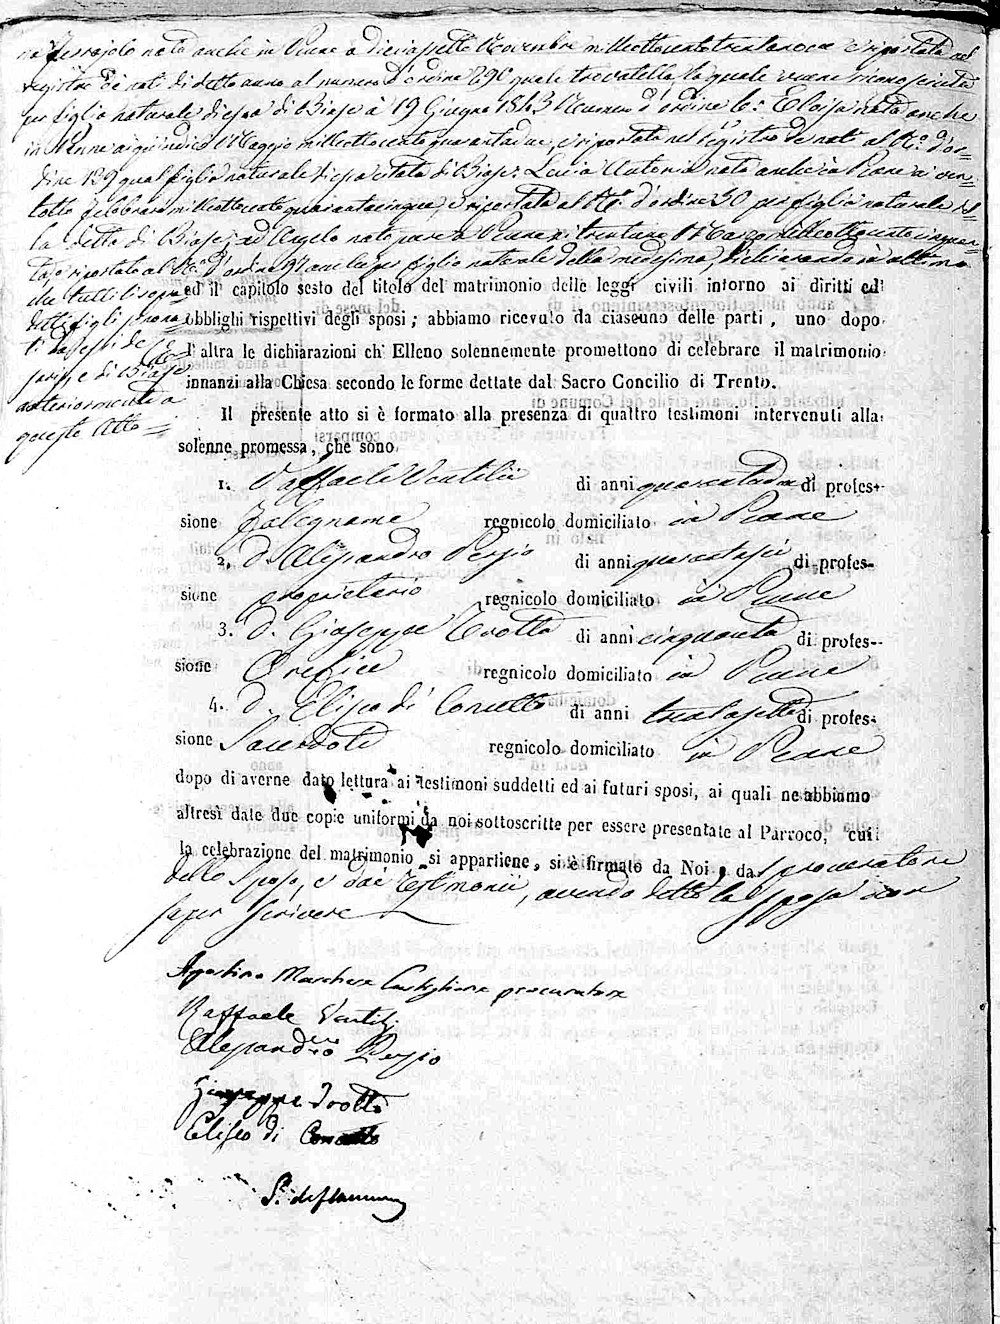 na Ferrajolo nata anche in Penne a diciassette Novembre milleottocentotrentanove e riportata nel
registro de' nati di detto anno al numero d'ordine 290 quale trovatella la quale venne riconosciuta
per figlia naturale di essa di Biase à 19 Giugno 1843 Numero d'ordine 6: Eloisa nata anche
in Penne ai quindici Maggio milleottocento quarantadue, e riportata nel registro de nati al N.o d'or-
dine 129 qual figlia naturale di essa citata di Biase: Lucia Antonia nata anche in Penne ai ven-
totto Febbraio milleottocento quarantacinque, e riportata al N.o d'ordine 50 per figlia naturale del-
la detta di Biase, ed Angelo nato pure a Penne il trentuno Marzo milleottocento cinquan-
ta, e riportato al N.o d'ordine 91 anche per figlio naturale della medesima, dichiarando in ultimo
che tutti li sopra
detti figli procrea-
ti da essi de Ce-
saris, e di Biase
anteriormente a
questo Atto =
ed il capitolo sesto del titolo del matrimonio delle leggi civili intorno ai diritti ed
obblighi rispettivi degli sposi; abbiamo ricevuto da ciascuno delle parti, uno dopo
l'altra le dichiarazioni ch' Elleno solennemente promettono di celebrare il matrimonio
innanzi alla Chiesa secondo le forme dettate dal Sacro Concilio di Trento.
Il presente atto si è formato alla presenza di quattro testimoni intervenuti alla
solenne promessa, che sono
1. Raffaele Ventilii di anni quarantadue di profes-
sione Falegname regnicolo domiciliato in Penne
2. D. Alessandro Persio di anni quarantasei di profes-
sione proprietario regnicolo domiciliato in Penne
3. D. Giuseppe Trotta di anni cinquanta di profes-
sione Orefice regnicolo domiciliato in Penne
4. D. Eliseo di Concetto di anni trentasette di profes-
sione Sacerdote regnicolo domiciliato in Penne
dopo di averne dato lettura ai testimoni suddetti ed ai futuri sposi, ai quali ne abbiamo
altresì date due copie uniformi da noi sottoscritte per essere presentate al Parroco, cui
la celebrazione del matrimonio si appartiene, si è firmato da Noi, da procuratore
dello Sposo, e dai Testimonii, avendo detto la Sposa non
saper scrivere
Agostino Marchese Castiglione procuratore
Raffaele Ventilj
Alessandro Persio
Giuseppe Trotta
Eliseo di Concetto